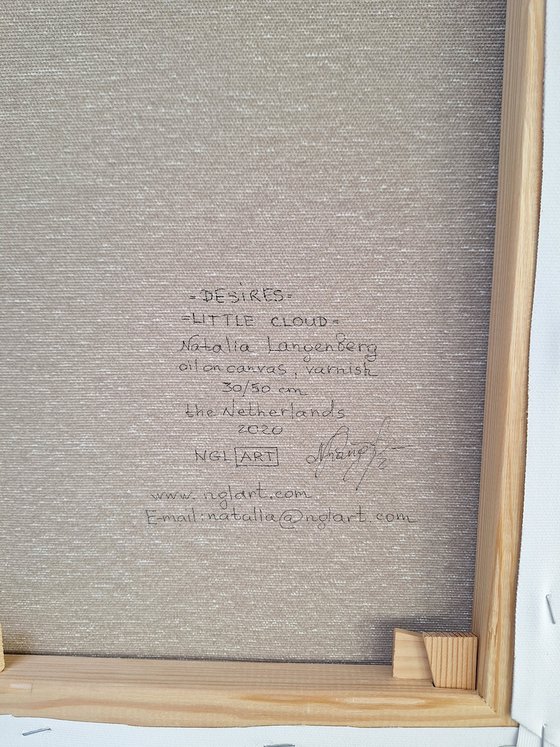 =DESIRES=
=LITTLE CLOUD=
Natalia Langenberg
oil on canvas, varnish
30/50 cm
the Netherlands
2020
NGL ART
www.nglart.com
E-mail:natalia@nglart.com